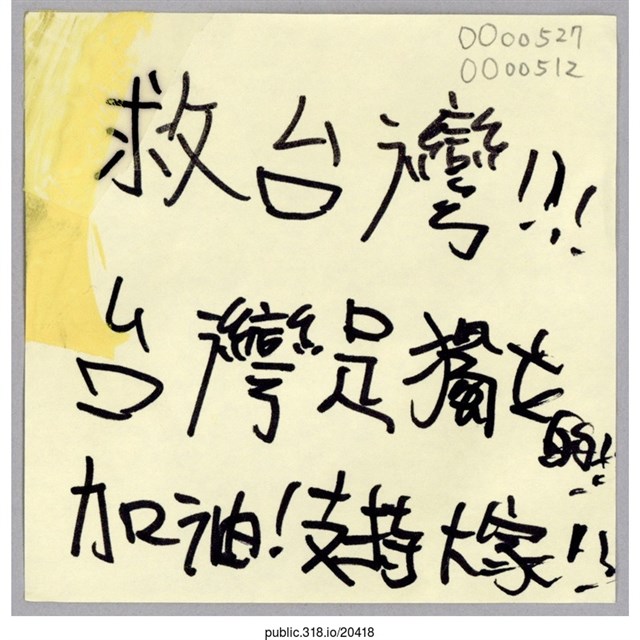 0000527
0000512
救台灣!!!
台灣是獨立的!!
加油!支持大家!!
public.318.io/20418